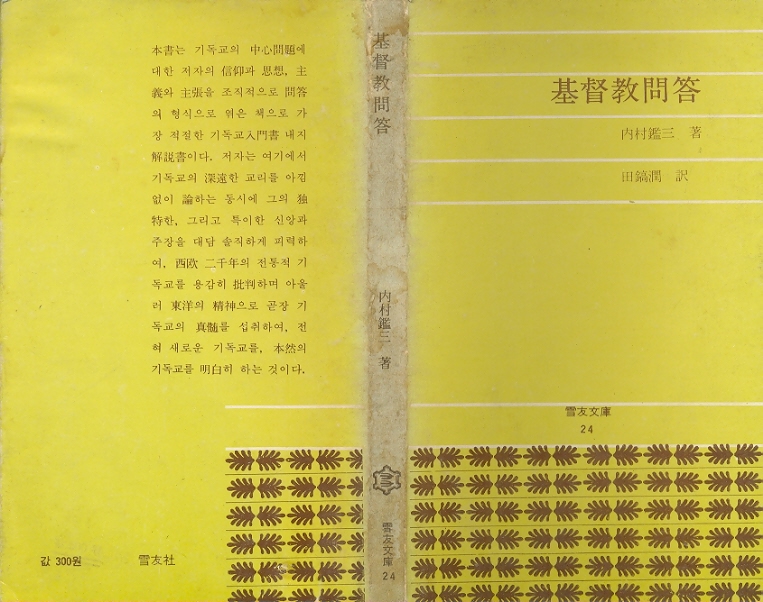 本書는 기독교의 中心問題에
대한 저자의 信仰과 思想, 主
義와 主張을 조직적으로 問答
의 형식으로 엮은 책으로 가
장 적절한 기독교入門書 내지
解説書이다. 저자는 여기에서
기독교의 深遠한 교리를 아낌
없이 論하는 동시에 그의 独
特한, 그리고 특이한 신앙과
주장을 대담 솔직하게 피력하
여, 西欧 二千年의 전통적 기
독교를 용감히 批判하며 아울
러 東洋의 精神으로 곧장 기
독교의 真髄를 섭취하여, 전
혀 새로운 기독교를, 本然의
기독교를 明白히 하는 것이다.
값 300원
雪友社
基督教問答
内村鑑三 著
雪友文庫
24
基督教問答
内村鑑三 著
田鎬潤 訳
雪友文庫
24